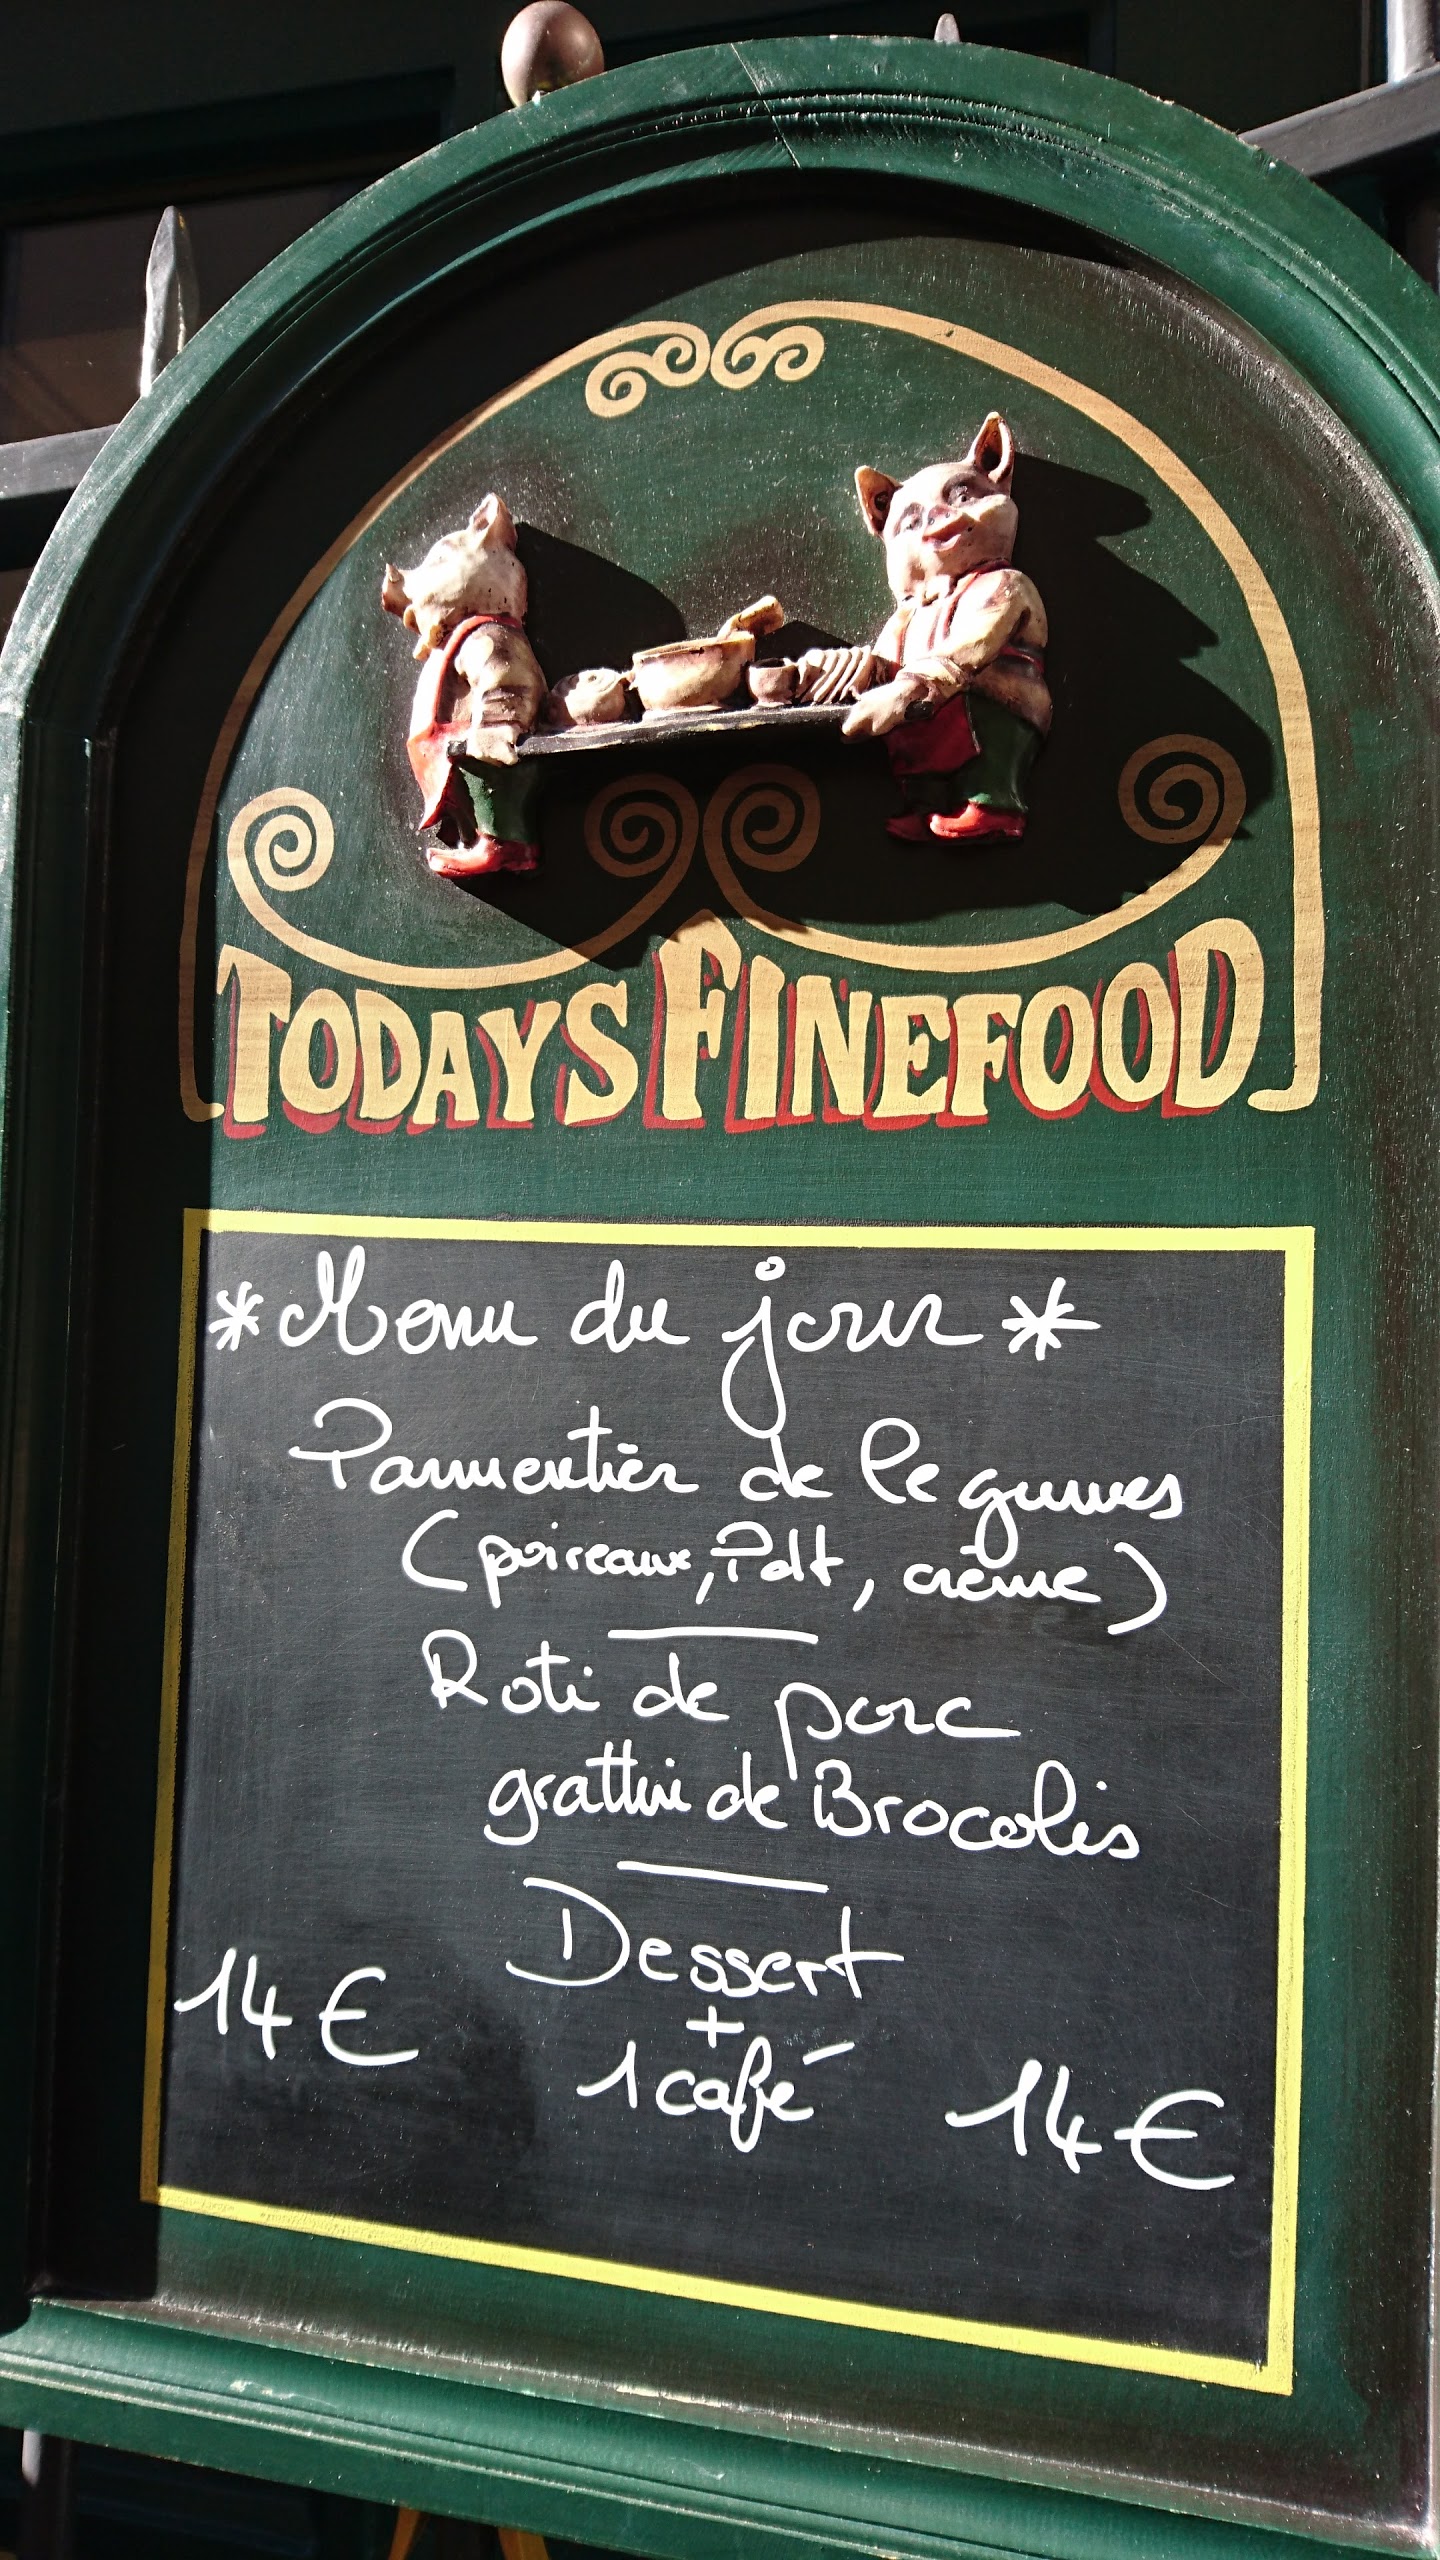 TODAYS FINEFOOD
*Menu du jour*
Parmentièr de légumes
(poireaux, Pdt, crème)
Roti de porc
grattin de Brocolis
Dessert
+
14€ 1 café 14€